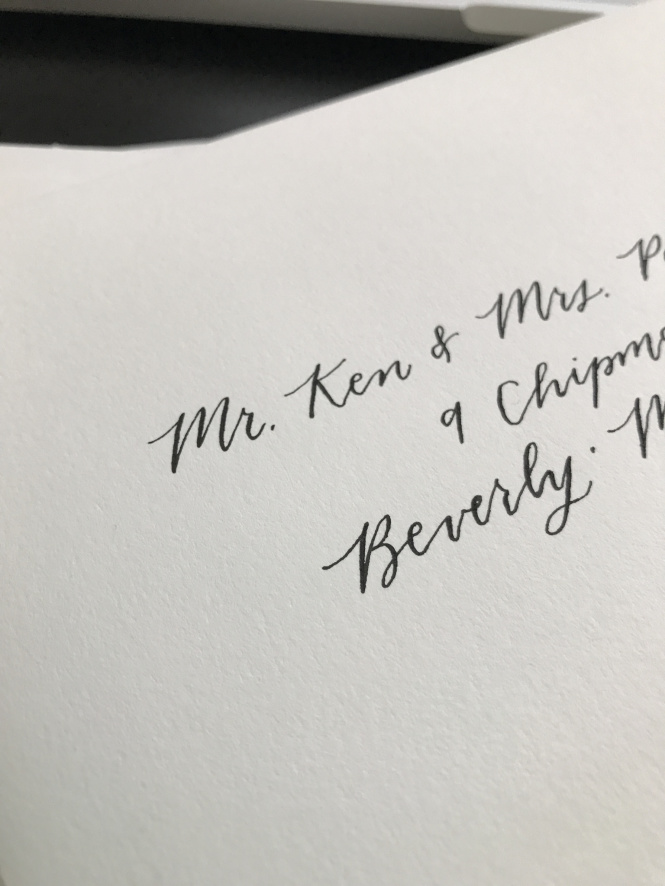 Mr. Ken & Mrs. P
9 Chipm
Beverly. M